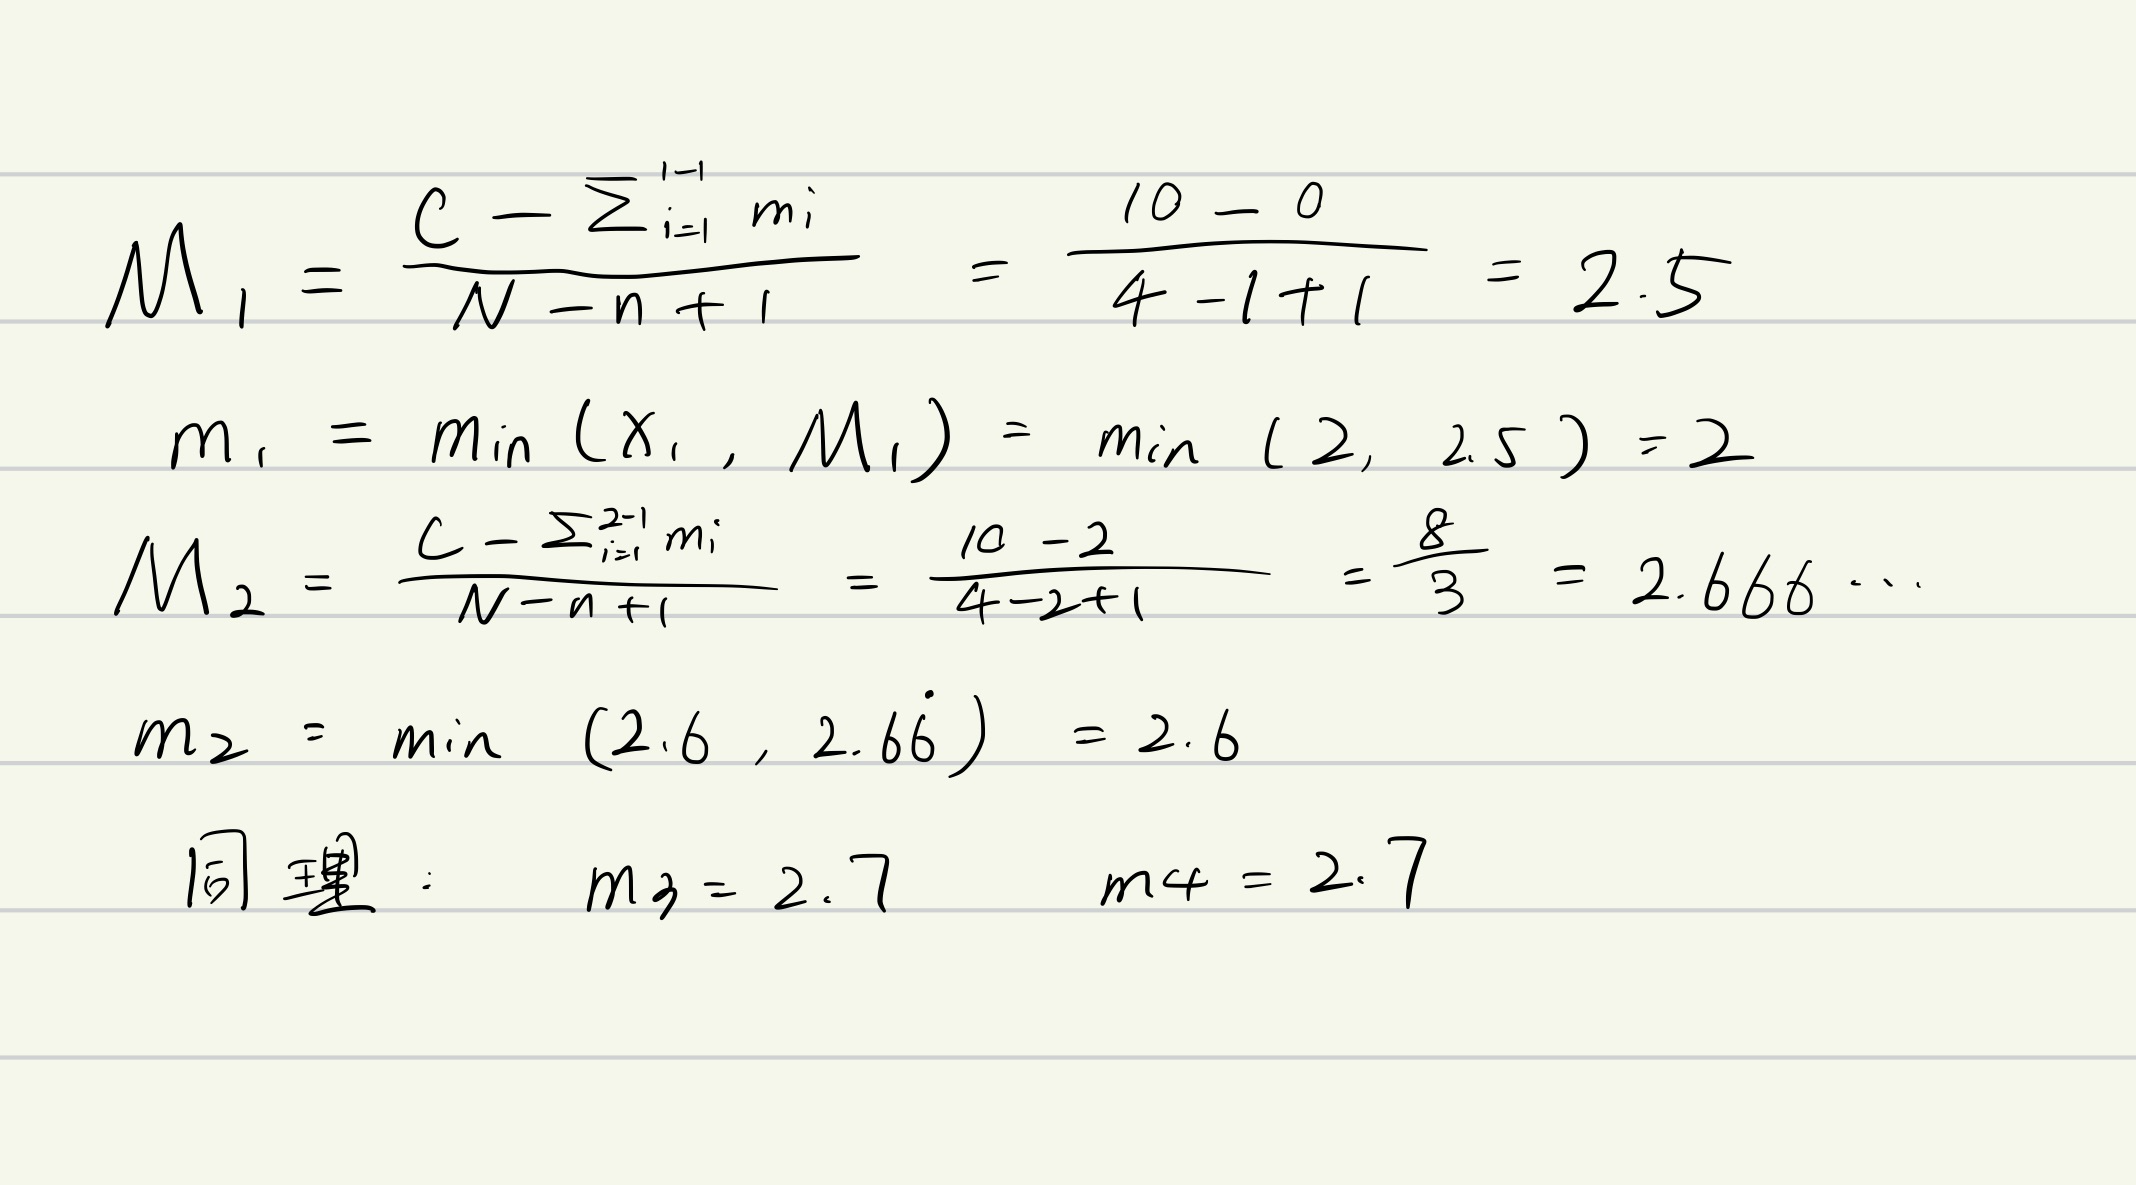 M₁ = (C − Σᵢ₌₁¹⁻¹ mᵢ) / (N − n + 1) = (10 − 0) / (4 − 1 + 1) = 2.5
m₁ = min (X₁, M₁) = min (2, 2.5) = 2
M₂ = (C − Σᵢ₌₁²⁻¹ mᵢ) / (N − n + 1) = (10 − 2) / (4 − 2 + 1) = 8/3 = 2.666 ...
m₂ = min (2.6, 2.66̇) = 2.6
同理: m₃ = 2.7 m4 = 2.7